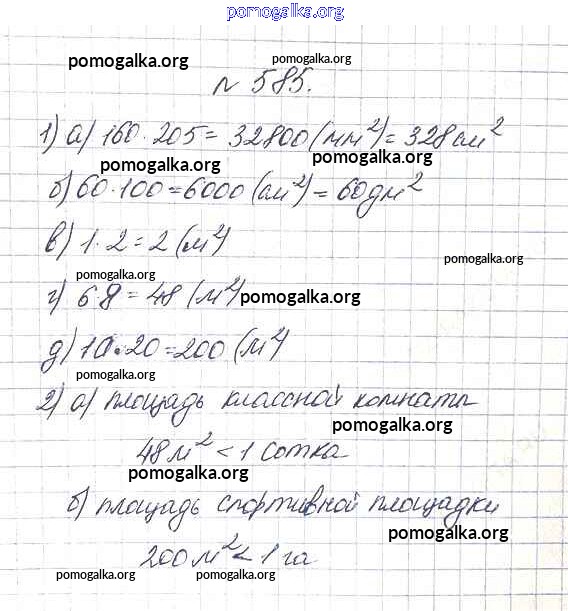 pomogalka.org
pomogalka.org pomogalka.org
№ 585.
1) а) 160 · 205 = 32800 (мм²) = 328 см²
pomogalka.org pomogalka.org
б) 60 · 100 = 6000 (см²) = 60 дм²
в) 1 · 2 = 2 (м²)
pomogalka.org
pomogalka.org
г) 6 · 8 = 48 (м²) pomogalka.org
д) 10 · 20 = 200 (м²)
pomogalka.org pomogalka.org
2) а) площадь классной комнаты
pomogalka.org pomogalka.org
48 м² < 1 сотка
pomogalka.org
б) площадь спортивной площадки
pomogalka.org
200 м² < 1 га
pomogalka.org pomogalka.org